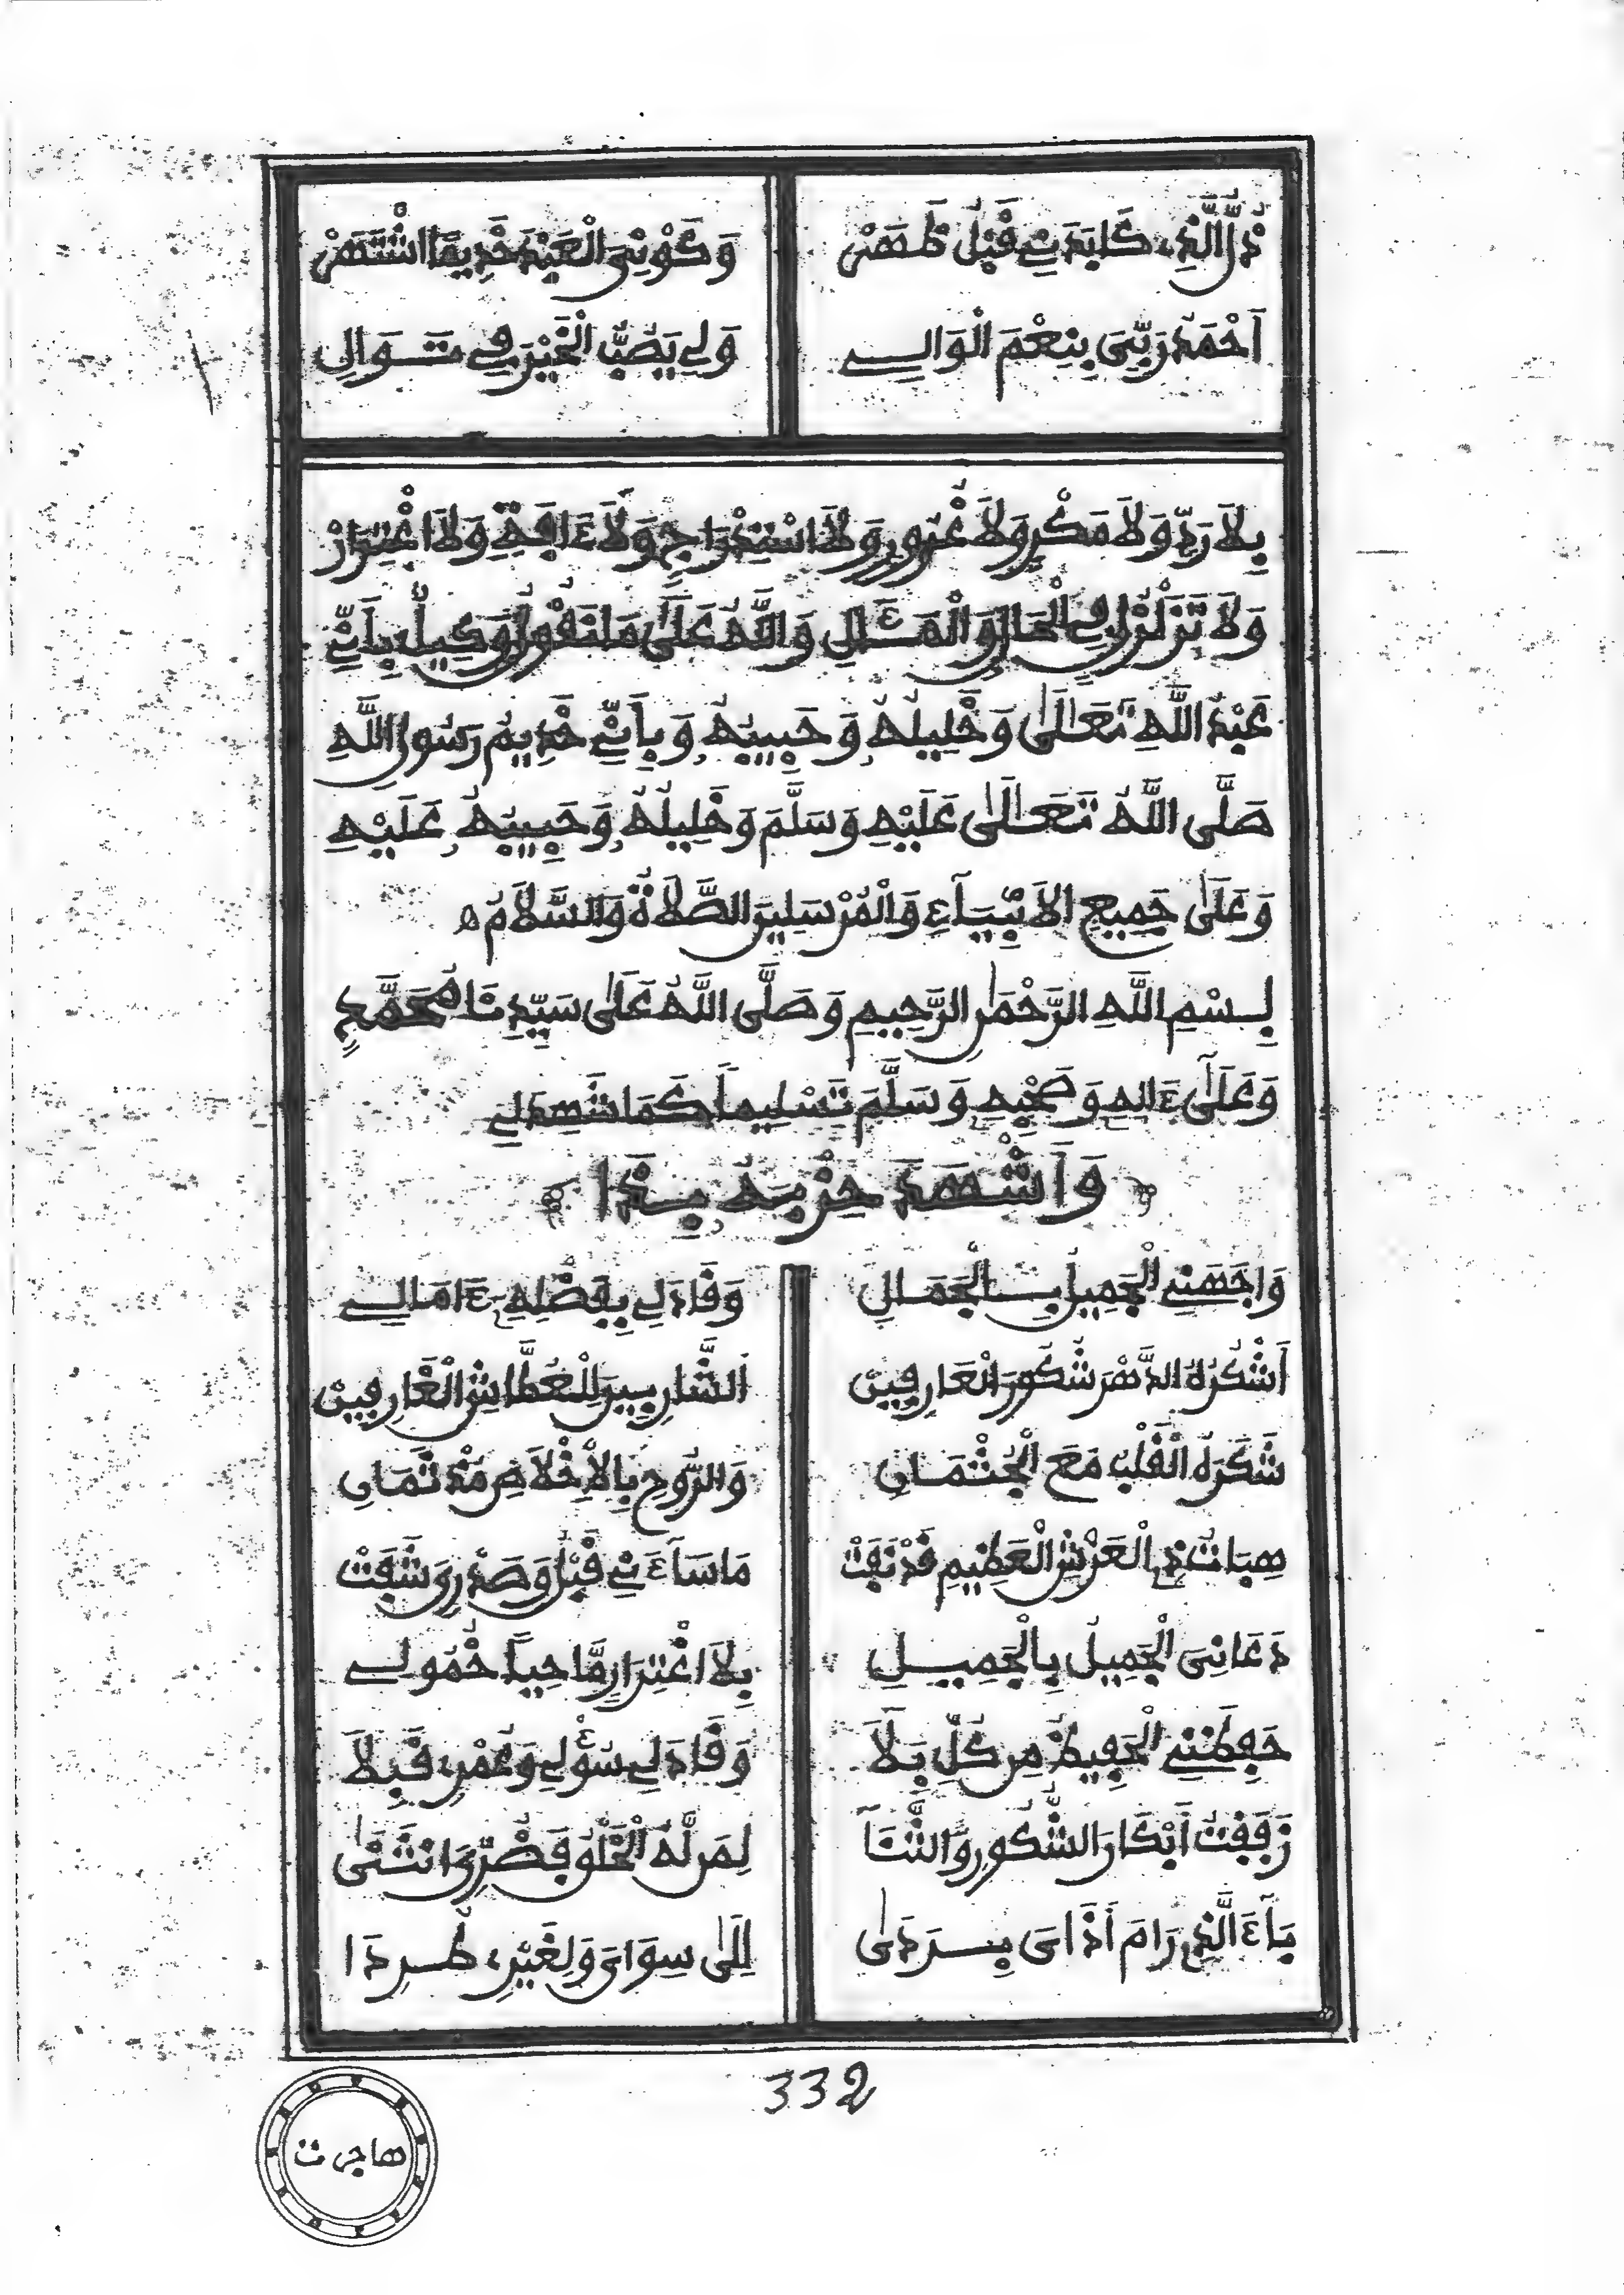 ذُلُّ الَّذِي كَابَدَنِي قَبْلُ ظَهَرْ وَكَوْنِيَ الْعَبْدَ خَدِيمًا اشْتَهَرْ
أَحْمَدُ رَبِّيَ بِنِعْمَ الْوَالِي وَلِي يَصُبُّ الْخَيْرَ فِي تَوَالِ
بِلَا رَدٍّ وَلَا مَكْرٍ وَلَا غُرُورٍ وَلَا اسْتِدْرَاجٍ وَلَا ءَافَةٍ وَلَا اغْتِرَارْ
وَلَا تَزَلْزُلٍ فِي الْحَالِ وَالْمَئَالِ وَاللَّهُ عَلَى مَا نَقُولُ وَكِيلٌ بِأَنِّي
عَبْدُ اللَّهِ تَعَالَى وَخَلِيلُهُ وَحَبِيبُهُ وَبِأَنِّي خَدِيمُ رَسُولِ اللَّهِ
صَلَّى اللَّهُ تَعَالَى عَلَيْهِ وَسَلَّمَ وَخَلِيلُهُ وَحَبِيبُهُ عَلَيْهِ
وَعَلَى جَمِيعِ الْأَنْبِيَآءِ وَالْمُرْسَلِينَ الصَّلَاةُ وَالسَّلَامُ
بِسْمِ اللَّهِ الرَّحْمَٰنِ الرَّحِيمِ وَصَلَّى اللَّهُ عَلَى سَيِّدِنَا مُحَمَّدٍ
وَعَلَى ءَالِهِ وَصَحْبِهِ وَسَلَّمَ تَسْلِيمًا كَمَا شَهِدَ لِي
وَاشْهَدَ حِزْبَهُ بِذَا
وَاجَهَنِي الْجَمِيلُ بِالْجَمَالِ وَقَادَ لِي بِفَضْلِهِ ءَامَالِي
أَشْكُرُهُ الدَّهْرَ شُكُورَ الْعَارِفِينْ الشَّارِبِينَ لِلْعُطَّاشِ الْغَارِفِينْ
شَكَرَهُ الْقَلْبُ مَعَ الْجُثْمَانِ وَالرُّوحِ بِالْإِخْلَاصِ مُذْ ثَمَانِ
هِبَاتُ ذِي الْعَرْشِ الْعَظِيمِ قَدْ نَفَتْ مَا سَآءَنِي قَبْلُ وَصَدْرِيَ شَفَتْ
دَعَانِيَ الْجَمِيلُ بِالْجَمِيلِ بِلَا اغْتِرَارٍ مَّاحِيًا خُمُولِي
حَفِظَنِي الْحَفِيظُ مِن كُلِّ بَلَا وَقَادَ لِي سُؤْلِي وَعُمْرِي قَبِلَا
زَفَفْتُ أَبْكَارَ الشُّكُورِ وَالثَّنَآ لِمَن لَّهُ الْخَلْقُ فَضُرِّيَ انْثَنَى
بَآءَ الَّذِي رَامَ أَذَايَ بِرَدَى إِلَى سِوَايَ وَلِغَيْرِي طُرِدَا
332
هاجرت